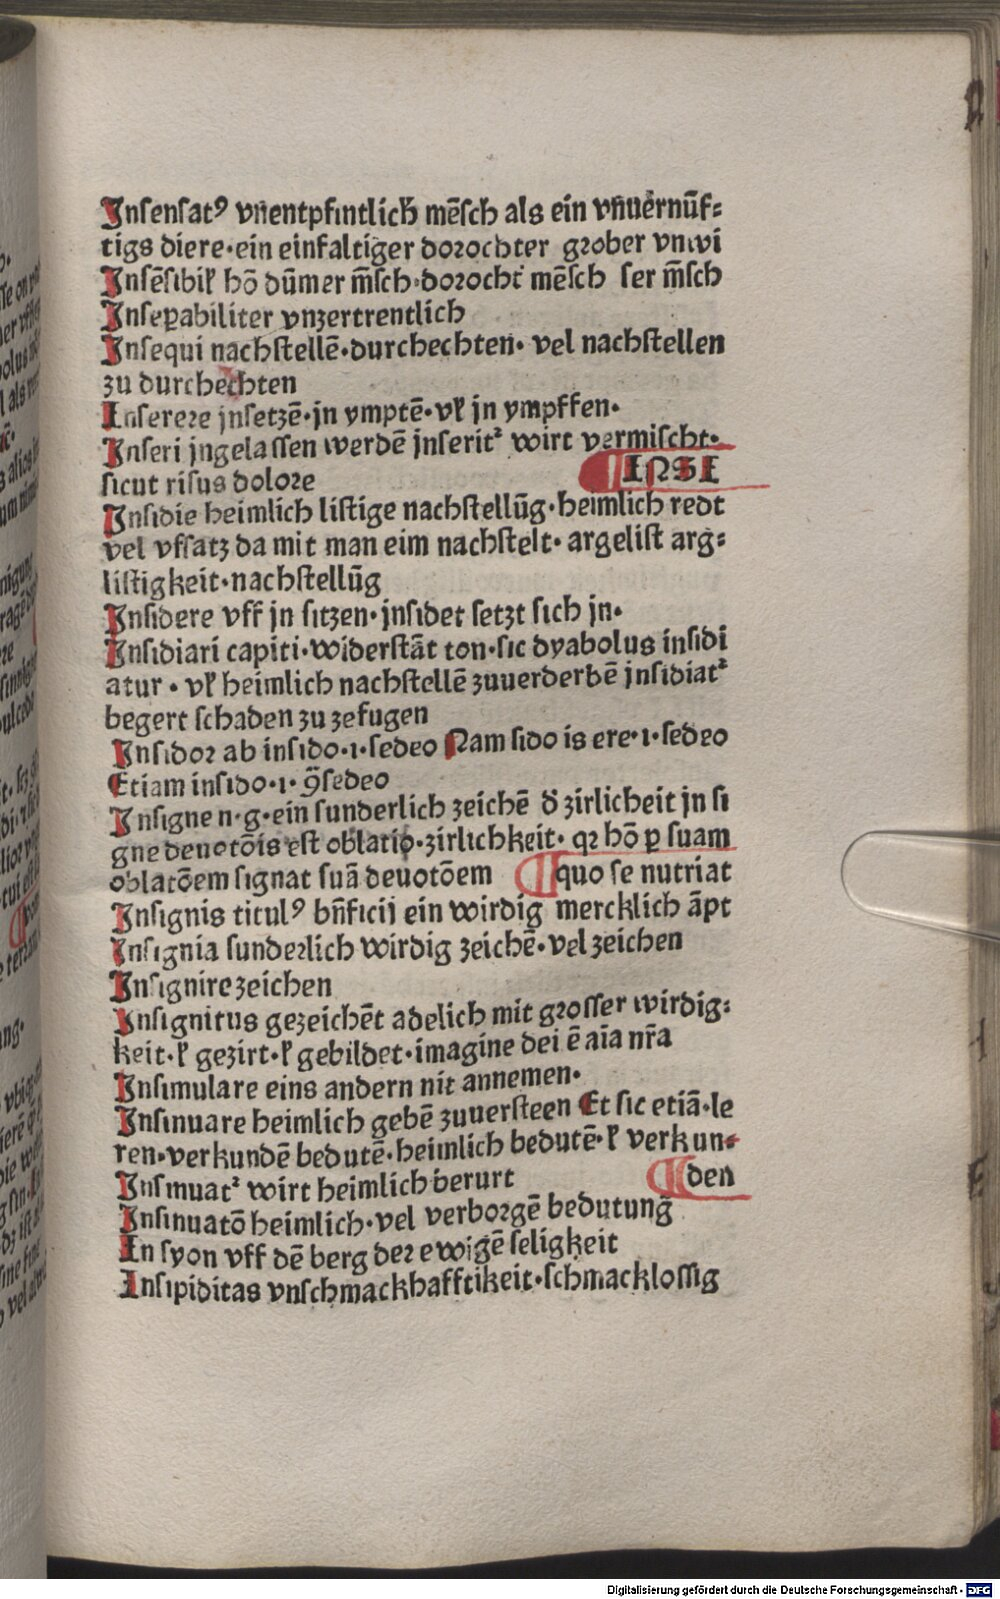 Insensatꝰ vn̄entpfintlich mēsch als ein vn̄uernūf⸗
tigs diere·ein einfaltiger dorochter grober vnwi
Insēsibiꝉ hō dūmer m̄sch·dorocht̄ mēsch ser m̄sch
Inseꝑabiliter vnzertrentlich
Insequi nachstellē·durchechten· vel nachstellen
zu durchechten
Inserere jnsetzē·jn ymptē·vꝉ jn ympffen·
Inseri jngelassen werdē jnseritᷣ wirt vermischt·
sicut risus dolore ¶ INSI
Insidie heimlich listige nachstellūg·heimlich redt
vel vfsatz da mit man eim nachstelt· argelist arg⸗
listigkeit·nachstellūg
Insidere vff jn sitzen·jnsidet setzt sich jn·
Insidiari capiti·widerstāt ton·sic dyabolus insidi
atur · vꝉ heimlich nachstellē zuuerderbē jnsidiatᷣ
begert schaden zu zefugen
Insidor ab insido·i·sedeo Nam sido is ere·i·sedeo
Etiam insido·i· ꝯ̄sedeo
Insigne n·g·ein sunderlich zeichē d̄ zirlicheit jn si
gne deuotōis est oblatio·zirlichkeit· qꝛ hō ꝑ suam
oblatōem signat suā deuotōem ¶ quo se nutriat
Insignis titulꝰ bn̄ficij ein wirdig mercklich āpt
Insignia sunderlich wirdig zeichē·vel zeichen
Insignire zeichen
Insignitus gezeichēt adelich mit grosser wirdig⸗
keit·ꝉ gezirt·ꝉ gebildet·imagine dei ē aīa nr̄a
Insimulare eins andern nit annemen·
Insinuare heimlich gebē zuuersteen Et sic etiā·le
ren·verkundē bedutē·heimlich bedutē·ꝉ verkun⸗
Insinuatᷣ wirt heimlich berurt ¶ den
Insinuatō heimlich·vel verborgē bedutung
In syon vff dē berg der ewigē seligkeit
Insipiditas vnschmackhafftikeit·schmacklossig
Digitalisierung gefördert durch die Deutsche Forschungsgemeinschaft · DFG